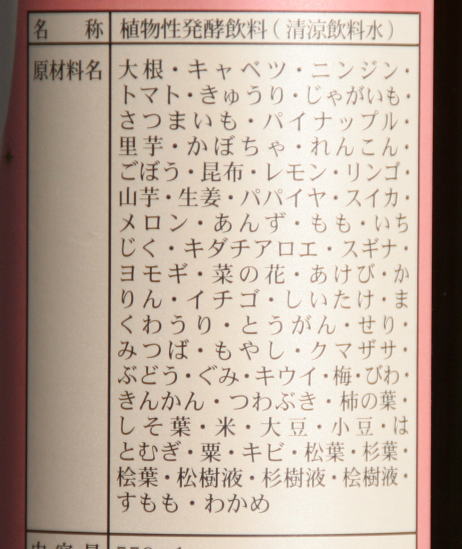 名 称 植物性発酵飲料(清涼飲料水)
原材料名 大根・キャベツ・ニンジン・
トマト・きゅうり・じゃがいも・
さつまいも・パイナップル・
里芋・かぼちゃ・れんこん・
ごぼう・昆布・レモン・リンゴ・
山芋・生姜・パパイヤ・スイカ・
メロン・あんず・もも・いち
じく・キダチアロエ・スギナ・
ヨモギ・菜の花・あけび・か
りん・イチゴ・しいたけ・ま
くわうり・とうがん・せり・
みつば・もやし・クマザサ・
ぶどう・ぐみ・キウイ・梅・びわ・
きんかん・つわぶき・柿の葉・
しそ葉・米・大豆・小豆・は
とむぎ・粟・キビ・松葉・杉葉・
桧葉・松樹液・杉樹液・桧樹液・
すもも・わかめ